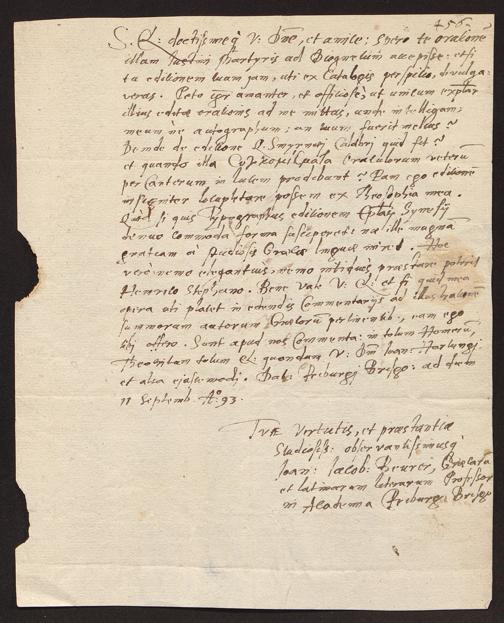 456.
S. Q: doctissimeq́ V: Dñe, et amice: spero te orationē
illam Iustini Martyris ad Diognetum accepisse: etsi
tu editionem tuam jam, uti ex Catalogis perspicio, divulga-
veras. Peto igr̄ amanter, et officiosè, ut unicum explar
illius editæ orationis ad me mittas, unde intelligam,
meum ne autographum, an tuum fuerit melius?
Deinde de editione Q. Smyrnæi Calabri quid fit?
et quando illa Oraculorum veterū
per Canterum in lucem prodebunt? Eam ego editionē
insigniter locupletare possem ex Theosophia mea.
Quòd si quis Typographus editionem Eptarū Synesij
denuò commoda forma susciperet: næ ille magnā
gratiam à studiosis Græcæ linguæ iniret. Hoc
verò nemo elegantius, nemo nitidius præstare poterit
Henrico Stephano. Bene vale V: Q: et si quid mea
opera tibi placet in edendis Commentarijs ad illustrationē
summorum autorum Græcorū pertinentib., eam ego
tibi offero. Sunt apud nos Commenta: in totum Homerū,
Theocritum totum Q: quondam V: Dñi Ioan: Hartungi
et alia ejuscemodi. Dat: Friburgi Brisgo: ad diem
11 Septemb. Aō. 93.
Tuæ Virtutis, et præstantiæ
studiosiss: observantissimusq́
Ioan: Iacob: Beurer, Græcarū
et latinarum literarum Professor
in Academia Friburg: Brisgo: